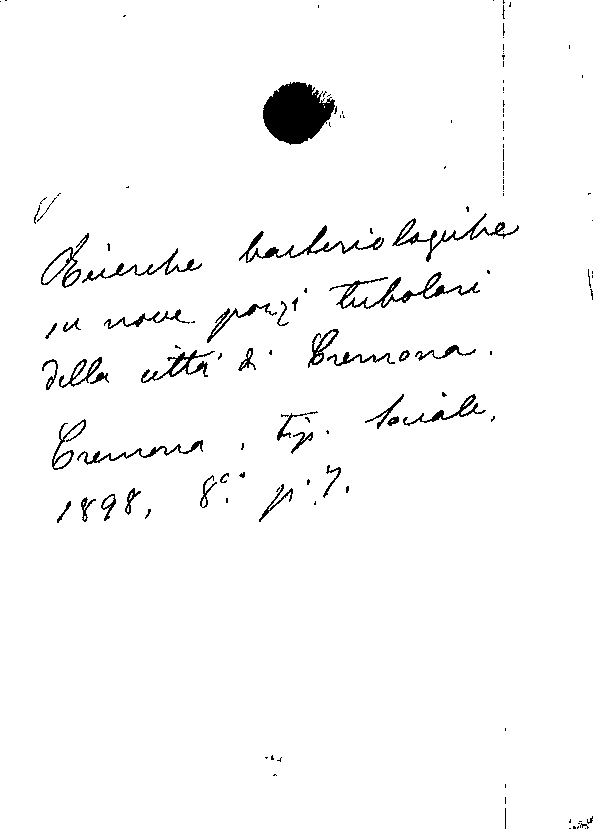 Ricerche bacteriologiche
su nove pozzi tubolari
della città di Cremona.
Cremona, tip. Sociale,
1898, 8°. p. 7.